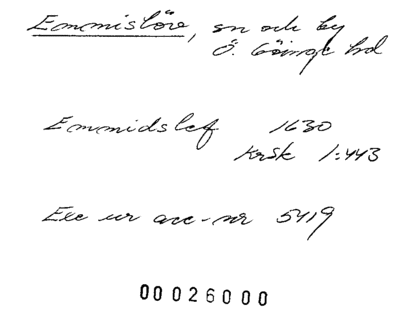 Emmislöv, sn och by
Ö. Göinge hd
Emmidslef 1630
Krsk 1:443
Exc ur acc-nr 5419
00026000